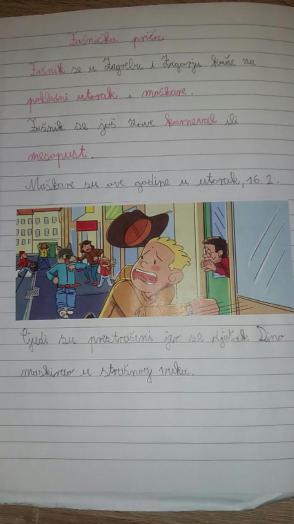 Fašnička priča
Fašnik se u Zagrebu i Zagorju kaže na
pokladni utorak i maškare.
Fašnik se još zove karneval ili
mesopust.
Maškare su ove godine u utorak, 16.2.
Ljudi su prestrašeni jer se dječak Dino
maskirao u strašnog vuka.